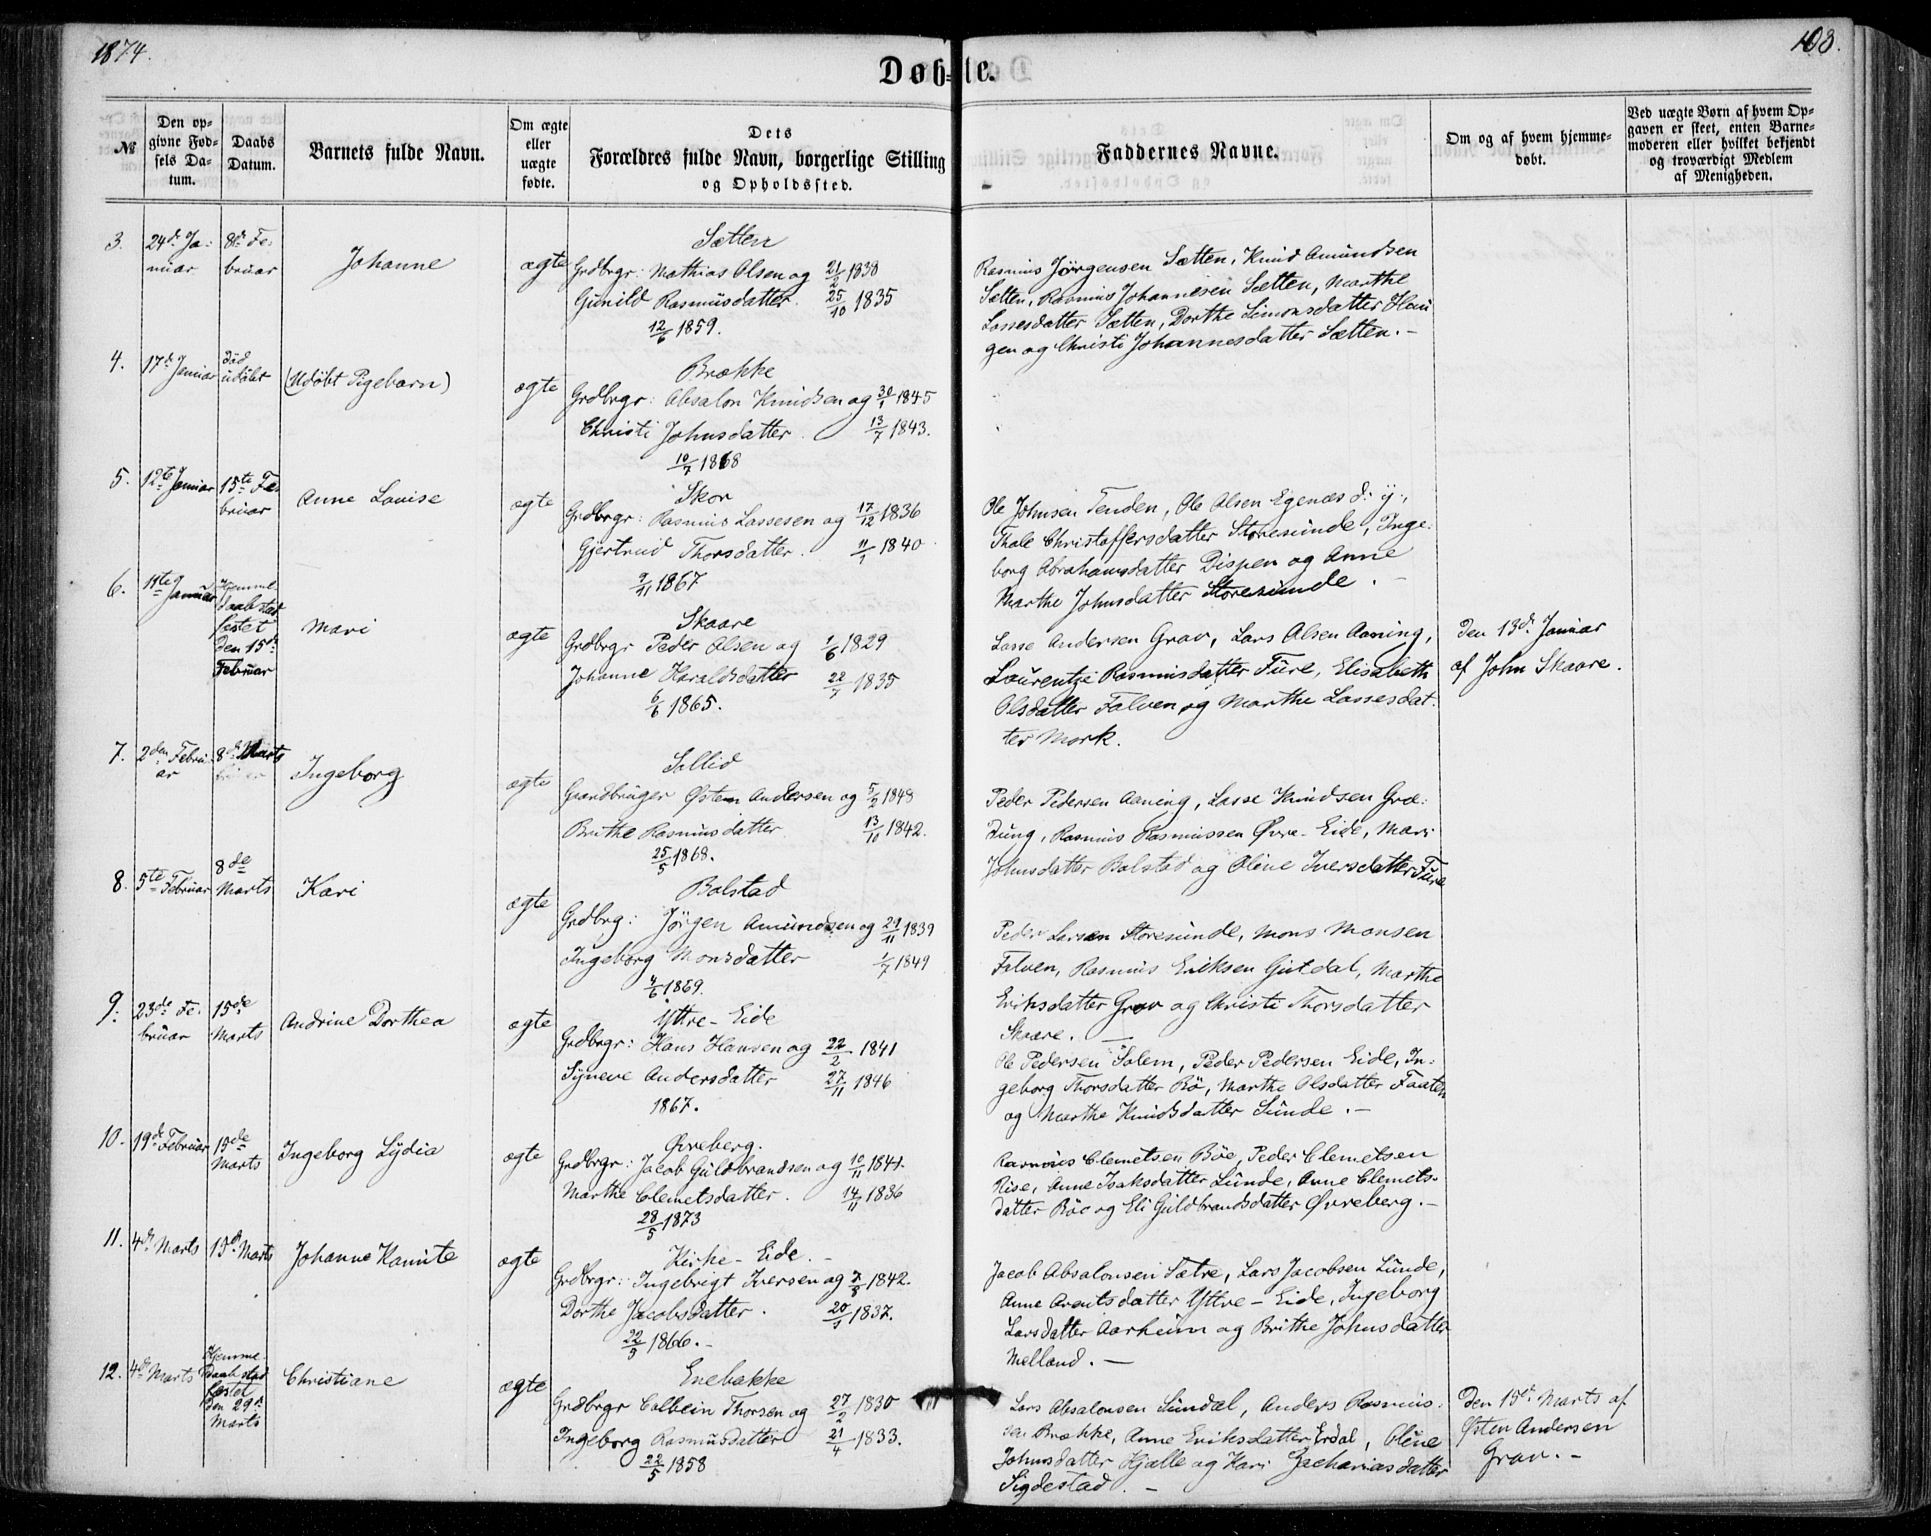 1874.
108.
Døbte.
№
Den opgivne Fødsels Datum.
Daabs Datum.
Barnets fulde Navn.
Om ægte eller uægte fødte.
Dets Forældres fulde Navn, borgerlige Stilling og Opholdssted.
Faddernes Navne.
Om og af hvem hjemmedøbt.
Ved uægte Børn af hvem Opgaven er skeet, enten Barnemoderen eller hvilket bekjendt og troværdigt Medlem af Menigheden.
3. 24de Ja- 8de Fe-
nuar bruar
Johanne
ægte
Sætten
Grdbrgr: Mathias Olsen og 21/2 1838
Gunild Rasmusdatter. 25/10 1835
12/6 1859.
Rasmus Jørgensen Sætten, Knud Amundsen
Sætten, Rasmus Johannesen Sætten, Marthe
Lassesdatter Sætten, Dorthe Simonsdatter Hau
gen og Christi Johannesdatter Sætten. -
4. 17de Januar død
udøbt
(Udøbt Pigebarn)
ægte
Brække
Grdbrgr: Absalon Knudsen og 30/1 1845
Christi Johnsdatter. 13/7 1843.
10/7 1868
5. 12te Januar 15te Fe-
bruar
Anne Louise
ægte
Skor
Grdbrgr: Rasmus Lassesen og 17/12 1836
Gjertrud Thorsdatter. 11/1 1840
9/11 1867
Ole Johnsen Tenden, Ole Olsen Egenæs d: y:,
Thale Christoffersdatter Storesunde, Inge-
borg Abrahamsdatter Dispen og Anne
Marthe Johnsdatter Storesunde. -
6. 11te Januar Hjemme
daab stad
festet
den 15de
Februar
Mari
ægte
Skaare
Grdbrgr Peder Olsen og 1/6 1829
Johanne Haraldsdatter 22/7 1835
6/6 1865.
Lasse Andersen Grav, Lars Olsen Aaning,
Laurentze Rasmusdatter Fure, Elisabeth
Olsdatter Falven og Marthe Lassesdat-
ter Mork.
den 13de Januar
af John Skaare.
7. 2den Febru- 8de Marts
ar
Ingeborg
ægte
Sollid
Grandbruger Østen Andersen og 5/2 1848
Brithe Rasmusdatter. 13/10 1842.
25/5 1868.
Peder Pedersen Aaning, Lasse Knudsen Grø-
dung, Rasmus Rasmussen Øvre-Eide, Mari
Johnsdatter Bolstad og Oline Iversdatter Fure
8. 5te Februar 8de
Marts
Kari
ægte
Bolstad
Grdbrg: Jørgen Amundsen og 29/11 1839
Ingeborg Monsdatter 1/7 1849
4/6 1869.
Peder Larsen Storesunde, Mons Monsen
Falven, Rasmus Eriksen Gutdal, Marthe
Eriksdatter Grov og Christi Thorsdatter
Skaare. -
9. 23de Fe- 15de
bruar Marts
Andrine Dorthea
ægte
Yttre-Eide
Grdbrgr: Hans Hansen og 22/2 1841
Synneve Andersdatter 27/11 1846
1867.
Ole Pedersen Solem, Peder Pedersen Eide, In-
geborg Thorsdatter Bø, Marthe Olsdatter Faaten
og Marthe Knudsdatter Sunde. -
10. 19de Februar 15de
Marts
Ingeborg Lydia
ægte
Øvreberg.
Grdbrgr: Jacob Guldbrandsen og 10/11 1841.
Marthe Clemetsdatter. 14/11 1836
28/5 1873
Rasmus Clemetsen Bøe, Peder Clemetsen
Rise, Anne Isaksdatter Lunde, Anne Clemets-
datter Bøe og Eli Guldbrandsdatter Øvreberg. -
11. 4de Marts 15de Marts
Johanne Kamite
ægte
Kirke-Eide. -
Grdbrgr: Ingebrigt Iversen og 7/5 1842.
Dorthe Jacobsdatter. 20/1 1837.
22/5 1866. -
Jacob Absalonsen Sætre, Lars Jacobsen Lunde,
Anne Arentsdatter Yttre-Eide, Ingeborg
Larsdatter Aarheim og Brithe Johnsdatter
Melland. -
12. 4de Marts Hjemme
daab stad
fæstet
den 29de
Marts
Christiane
ægte
Enebakke
Grdbrgr Colbein Thorsen og 27/2 1830
Ingeborg Rasmusdatter 21/4 1833.
22/5 1858
Lars Absalonsen Sundal, Anders Rasmus-
sen Brække, Anne Eriksdatter Erdal, Oline
Johnsdatter Hjelle og Kari Zachariasdatter
Sigdestad. -
Den 15de Marts af
Østen Andersen
Grav. -